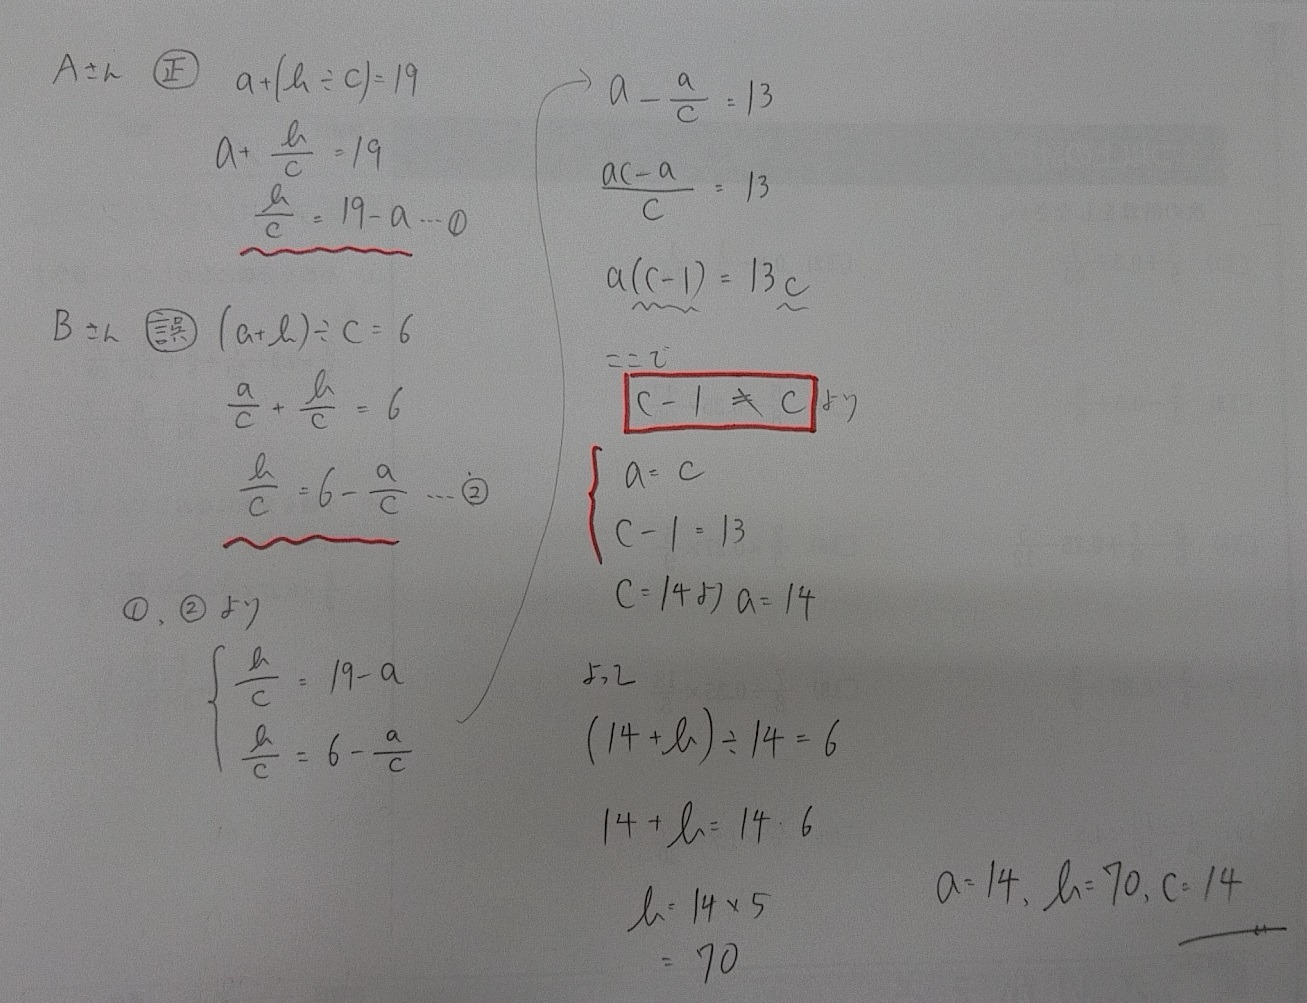 Aさん ㊣ a+(b÷c)=19
a+ b/c =19
b/c = 19-a …①
Bさん 誤 (a+b)÷c=6
a/c + b/c = 6
b/c = 6- a/c …②
①、②より
b/c = 19-a
b/c = 6- a/c
a - a/c = 13
ac-a/c = 13
a(c-1) = 13c
ここで
c-1 ≠ c より
a = c
c-1 = 13
c=14より a=14
よって
(14+b)÷14=6
14+b=14・6
b=14×5
=70
a=14、b=70、c=14